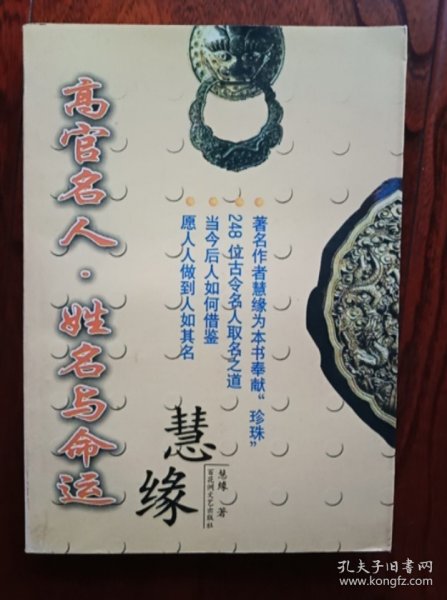 高官名人·姓名与命运
著名作者慧缘为本书奉献“珍珠”
248位古今名人取名之道
当今后人如何借鉴
愿人人做到人如其名
慧缘
慧缘 著
百花洲文艺出版社
孔夫子旧书网
www.kongfz.com